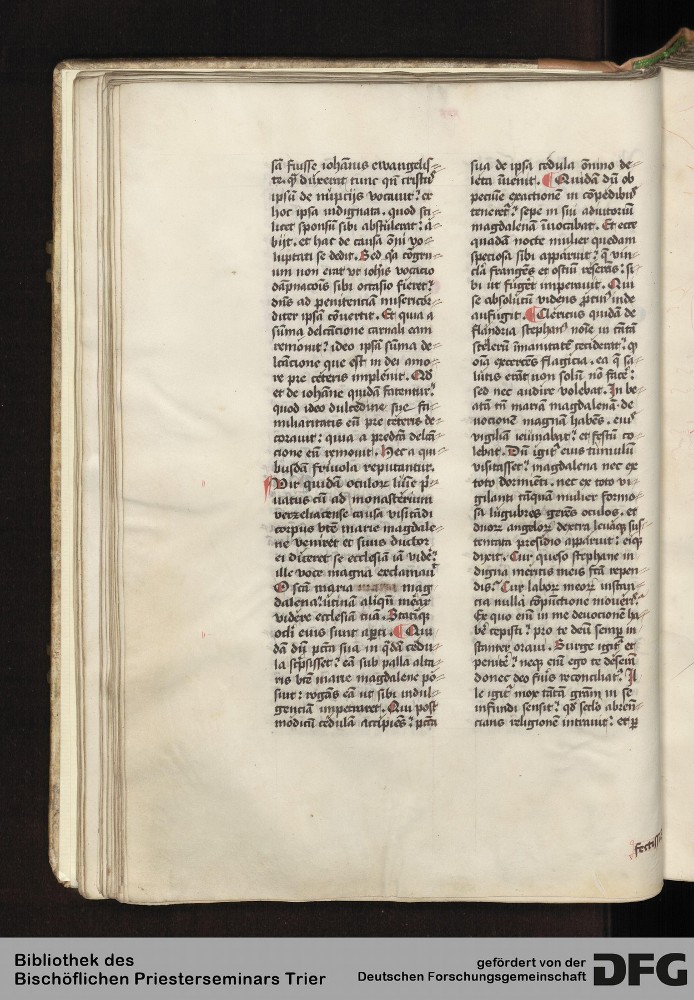 sā fuisse iohānis ewangelis-
te. q̄ duxerat tunc qn̄ cristꝰ
ipsū de nuptijs vocauit? et
hoc ipsa indignata. quod sci-
licet sponsū sibi abstulerat? a-
bijt. et hac de causa ōni vo-
luptati se dedit. Sed qa cōgru-
um non erat vt iohīs vocacio
dāpnacōis sibi occasio fieret?
dn̄s ad penitenciā misericor-
diter ipsā cōuertit. Et quia a
sūma delcācione carnali eam
remouit? ideo ipsā sūma de-
lcācione que est in dei amo-
re pre ceteris impleuit. Qd
et de iohāne quidā fatentur?
quod ideo dulcedine sue fa-
miliaritatis eū pre ceteris de-
corauit: quia a predcā delcā-
cione eū remouit. Hec a qui-
busdā friuola reputantur.
Vir quidā oculoꝝ lūīe pͥ-
uatus cū ad monasteriūm
verzeliacense causa visitādi
corpus btē marie magdale-
ne veniret et suus ductor
ei diceret se ecclesiā iā vide͛?
ille voce magna exclamauͭ
O scā maria mag
dalena? utinā aliqn̄ meāꝛ
videre ecclesiā tuā. Statiꝗ
ocli eius sunt ap̄ti. Qui-
dā dū pctā sua in qͣdā cedu-
la scͥpsisset? eā sub palla alta-
ris btē marie magdalene po-
suit: rogās eā ut sibi indul-
genciā impetraret. Qui post
modicū cedulā accipiēs? pctā
sua de ipsa cedula ōnino de-
leta īuenit. Quidā dū ob
pecuīe exactionē in cōpedibꝰ
teneret͛? sepe in sui adiutoriū
magdalenā īuocabat. Et ecce
quadā nocte mulier quedam
speciosa sibi apparuit? q̄ vin-
cla frangēs et ostiū reserās: si-
bi ut fuget͛ imperauit. Qui
se absolutū videns ꝓtinͥ inde
aufugit. Clericus quidā de
flandria stephanꝰ noīe in tātā
sceleꝝ īmanitatē ceciderat? ꝙ
oīa exercēs flagicia. ea q̄ sa-
lutis erāt non solū nō face͛?
sed nec audire volebat. In be-
atā tn̄ mariā magdalenā de-
uocionē magnā habēs. eiꝰ
vigiliā ieiunabat? et festū co-
lebat. Dū igiͭ eius tumulū
visitasset? magdalena nec ex
toto dormiēti. nec ex toto vi-
gilanti tāquā mulier formo-
sa lugubres gerēs oculos. et
duoꝝ angeloꝝ dextra leuaꝗ sus-
tentata presidio apparuit? eiꝗ
dixit. Cur queso stephane in
digna meritis meis fcā repen-
dis? Cur laboꝝ meoꝝ instan-
cia nulla cōpūctione mouer͛?
Ex quo enī in me deuocionē ha-
bē͛ cepisti? pro te deū semꝑ in
stanter oraui. Surge igiͭ et
penite͛? neqꝫ enī ego te deserā
donec deo fuis reconciliatꝰ. Il-
le igiͭ mox tātā grām in se
infundi sensit? qd sclo abren-
cians religionē intrauit? et ꝑ
fectissi
Bibliothek des
Bischöflichen Priesterseminars Trier
gefördert von der
Deutschen Forschungsgemeinschaft
DFG